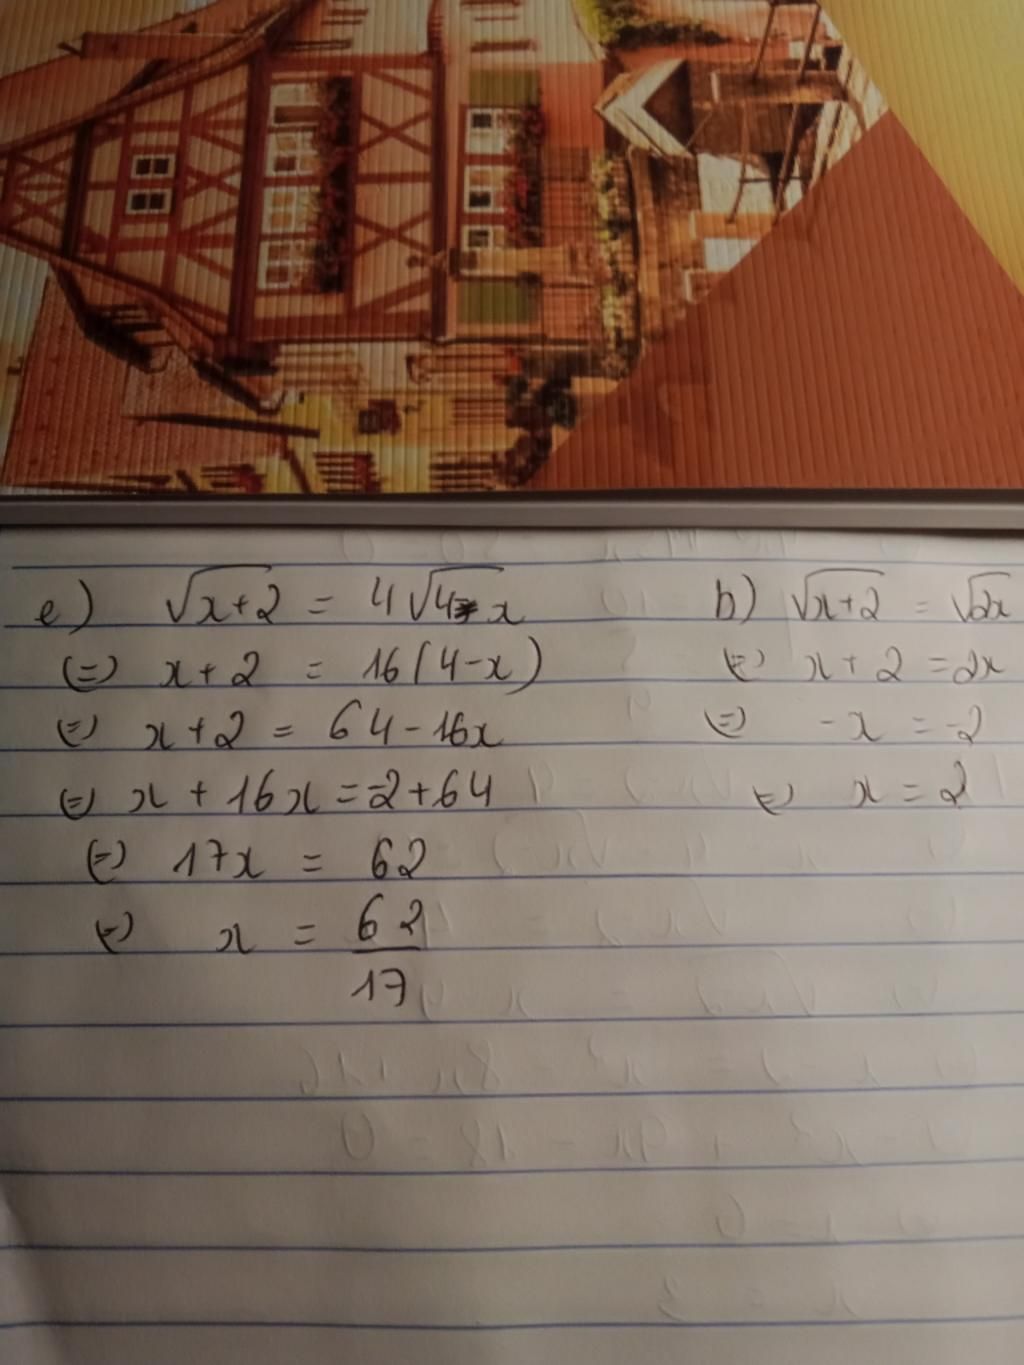 e) √x+2 = 4√4-x
(=) x+2 = 16(4-x)
(=) x+2 = 64-16x
(=) x + 16x = -2+64
(=) 17x = 62
(=) x = 62/17
b) √x+2 = √2x
(=) x+2 = 2x
(=) -x = -2
(=) x = 2